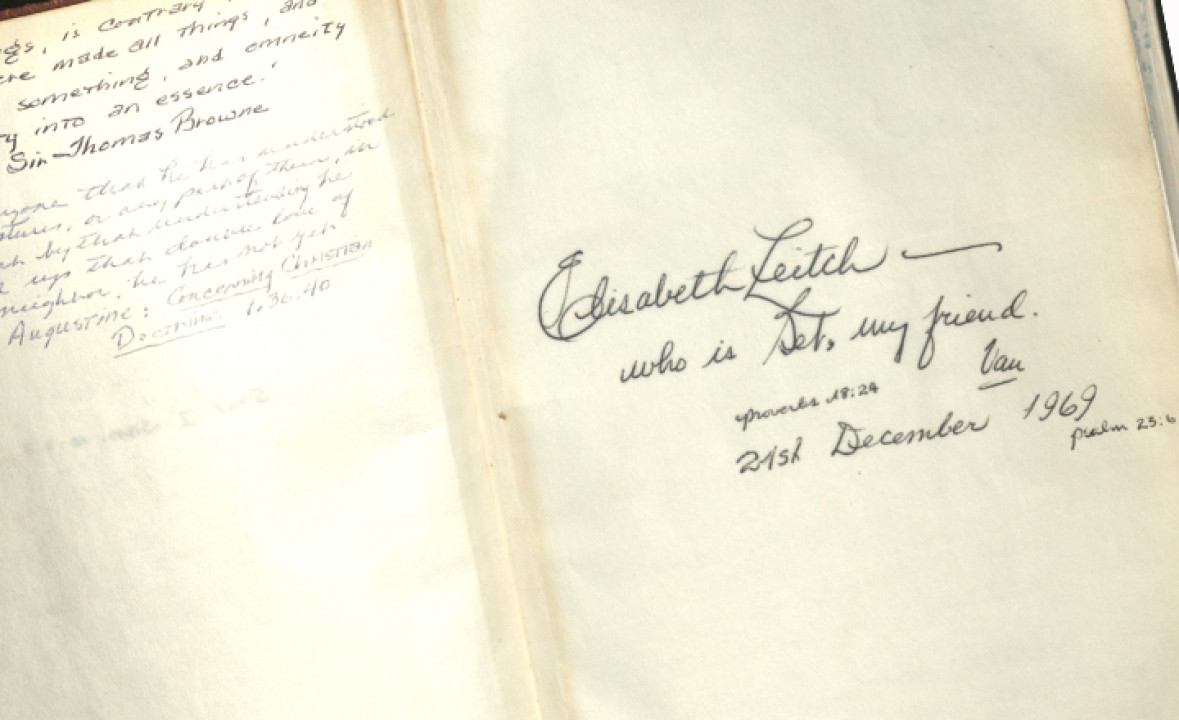 gs, is contrary
ere made all things, and
something, and omneity
ty into an essence.'
Sir Thomas Browne
nyone that he has understood
ptures, or any part of them, in
ch by that understanding he
up that double love of
neighbor, he has not yet
Augustine: Concerning Christian
Doctrine 1.36.40
Elisabeth Leitch —
who is Bet, my friend.
Van
proverbs 18:24
21st December 1969
psalm 23:6